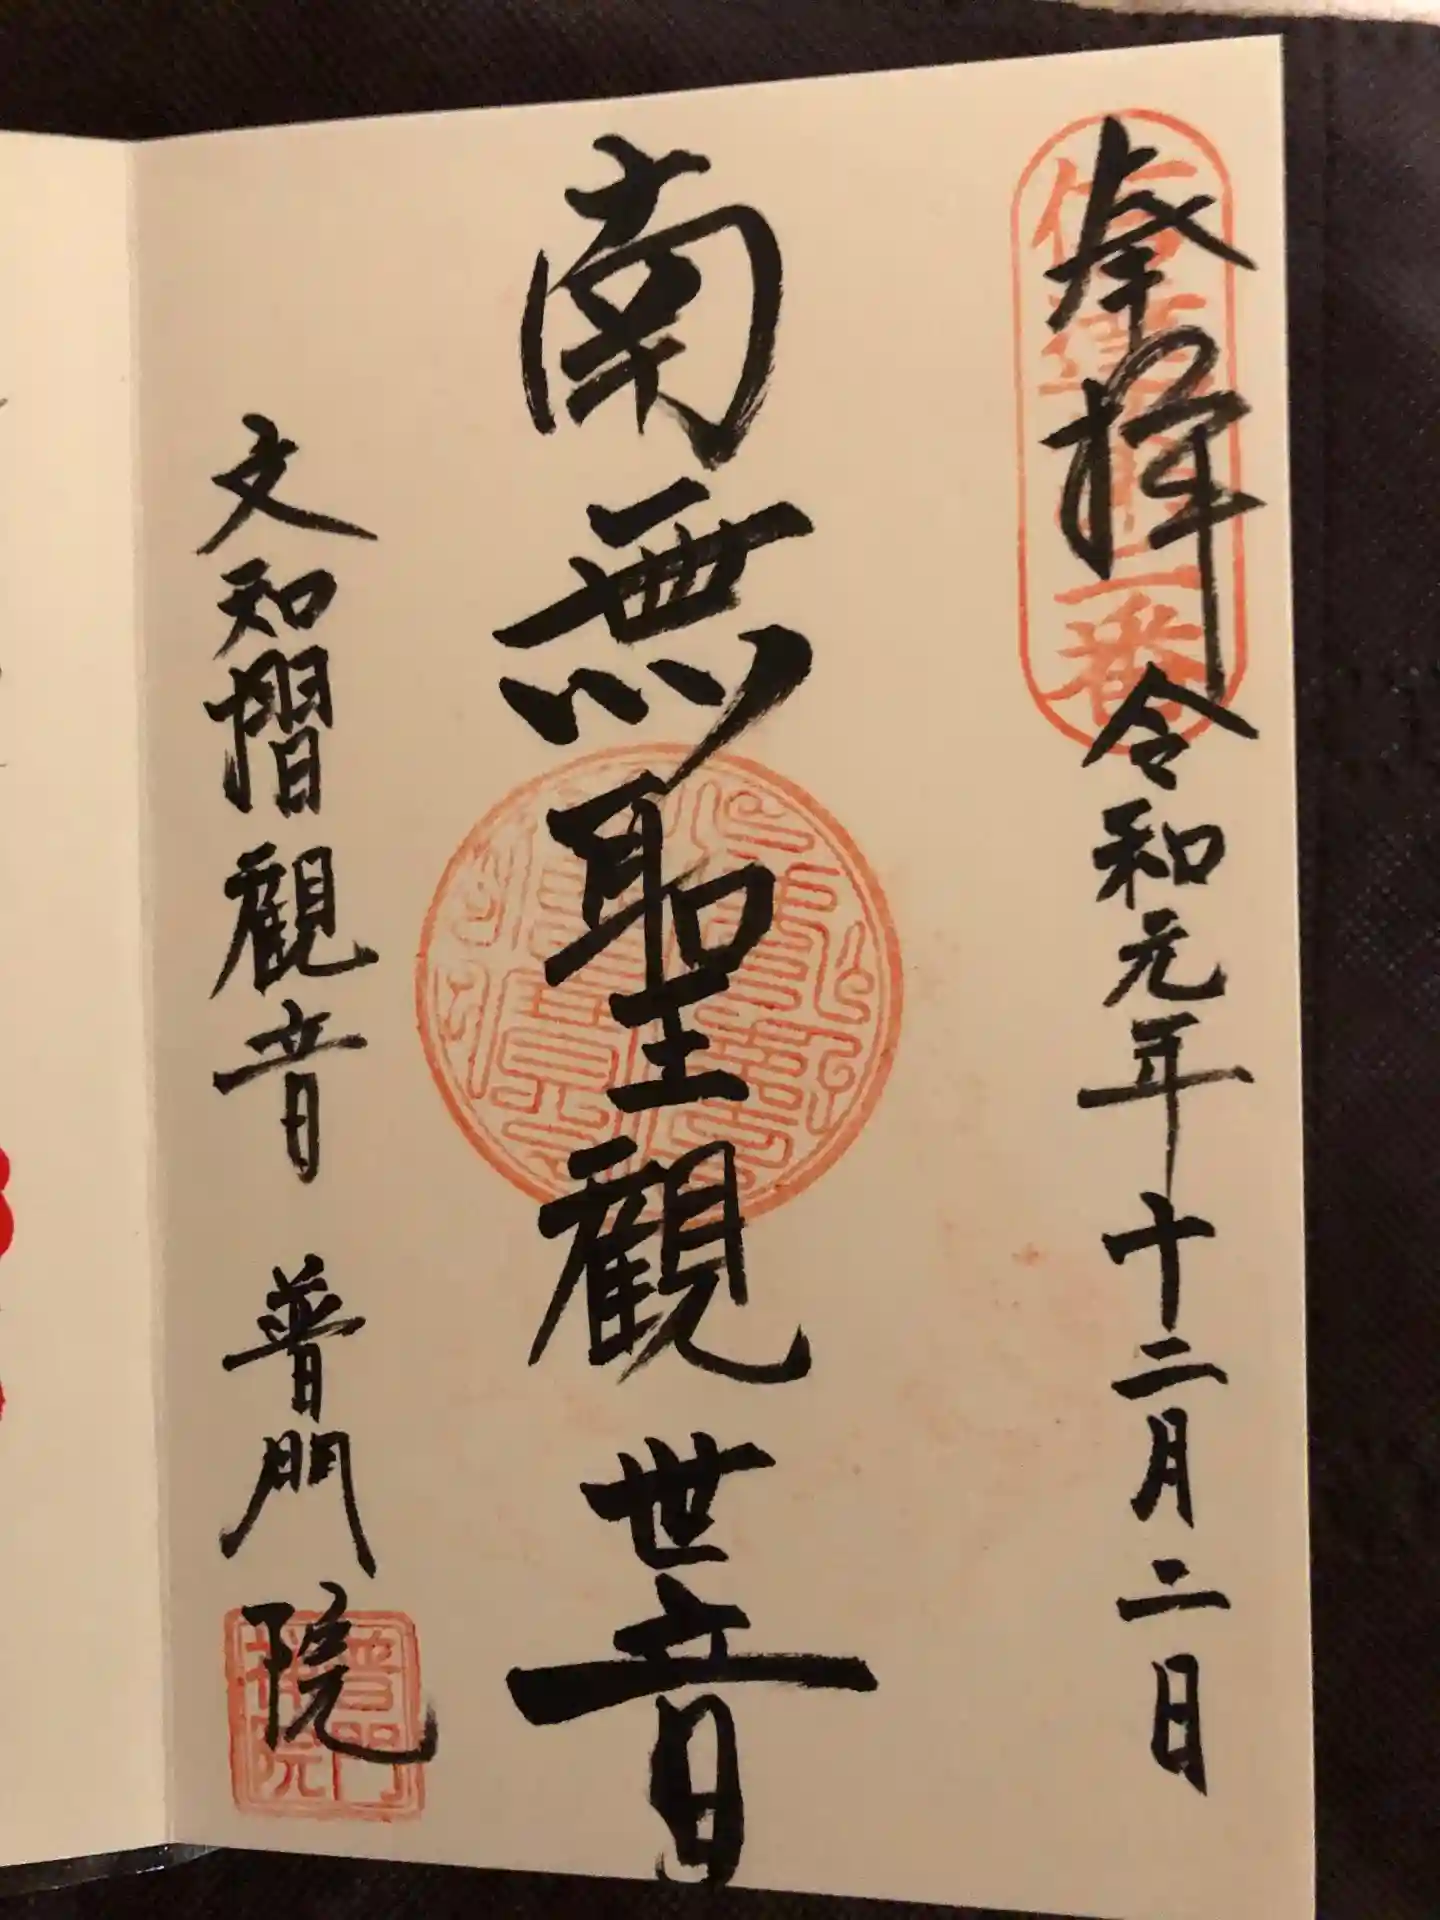 奉拝 令和元年十二月二日
南無聖觀世音
文知摺觀音 普門院
普門
院